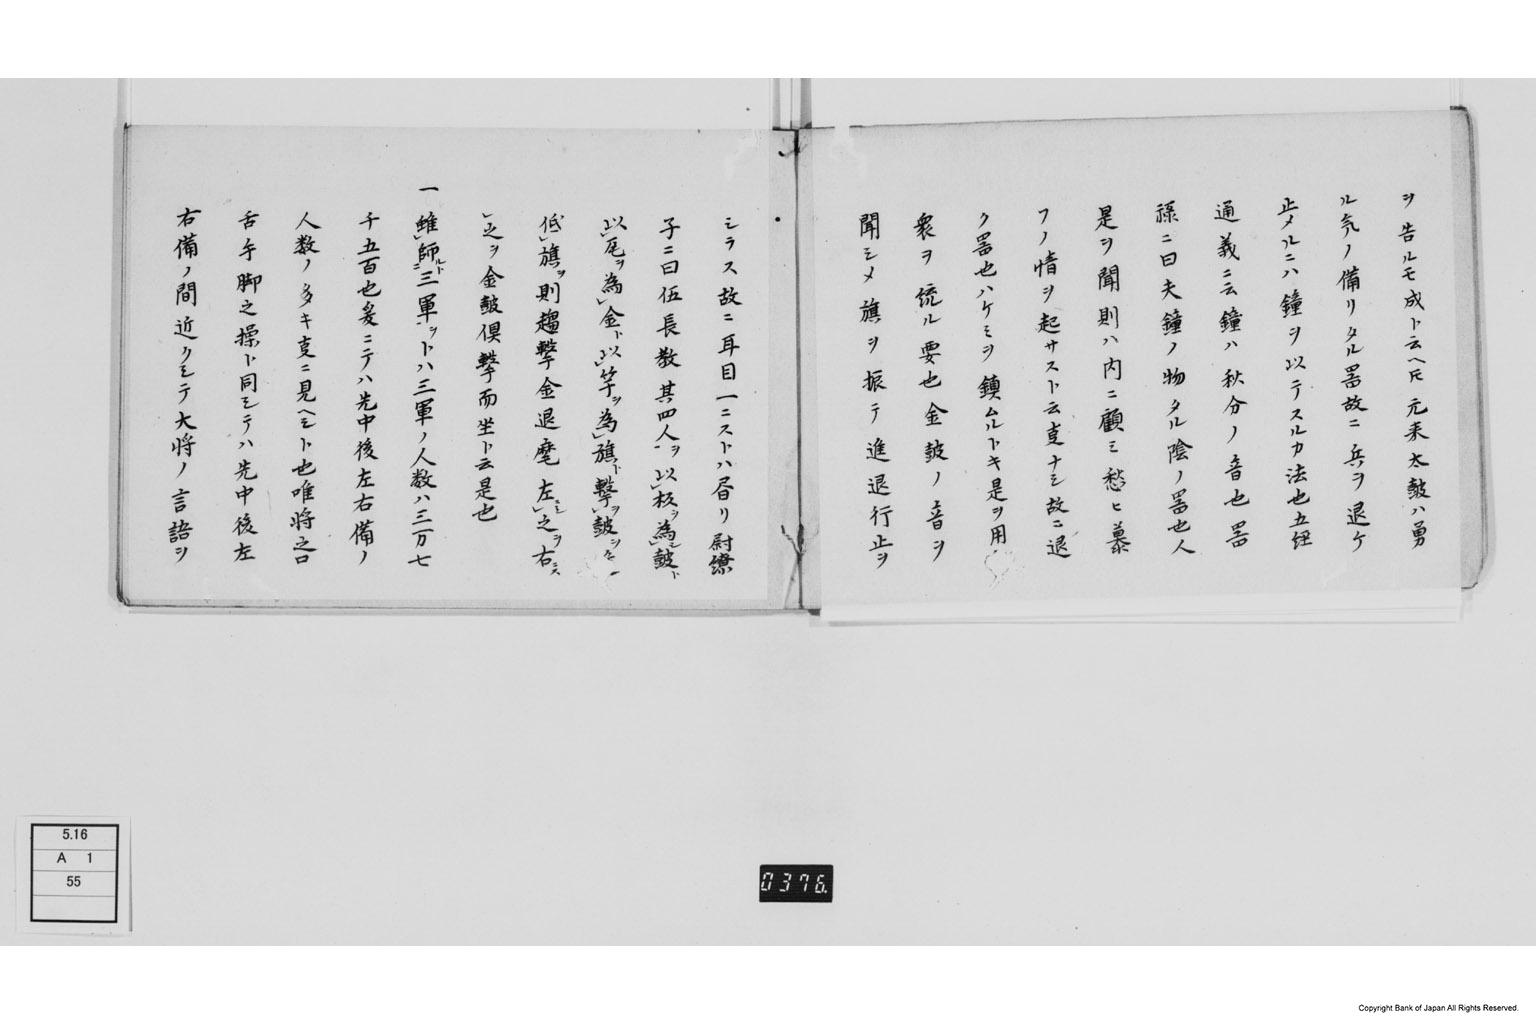 ヲ告ルモ成ト云ヘ𪜈元来太皷ハ勇
ル気ノ備リタル器故ニ兵ヲ退ケ
止メルニハ鐘ヲ以テスルカ法也五経
通義ニ云鐘ハ秋分ノ音也器
禄ニ曰夫鐘ノ物タル陰ノ器也人
是ヲ聞則ハ内ニ顧ミ愁ヒ慕
フノ情ヲ起サスト云叓ナシ故ニ退
ク器也ハケミヲ鎮ムルトキ是ヲ用
衆ヲ統ル要也金皷ノ音ヲ
聞シメ旗ヲ振テ進退行止ヲ
シラス故ニ耳目一ニストハ昏リ尉繚
子ニ曰伍長教其四人ヲ以板ヲ為皷ト
以尾ヲ為金ト以竿ヲ為旗ト撃皷ヲ
低旗ヲ則趨撃金退麾左之ヲ右
之ヲ金皷倶撃而坐ト云是也
一雖師ニルト三軍ヲトハ三軍ノ人数ハ三万七
千五百也爰ニテハ先中後左右備ノ
人数ノ多キ叓ニ見ヘシト也唯将之口
舌手脚之操ト同シテハ先中後左
右備ノ間近クシテ大将ノ言語ヲ
5.16
A 1
55
0376
Copyright Bank of Japan All Rights Reserved.